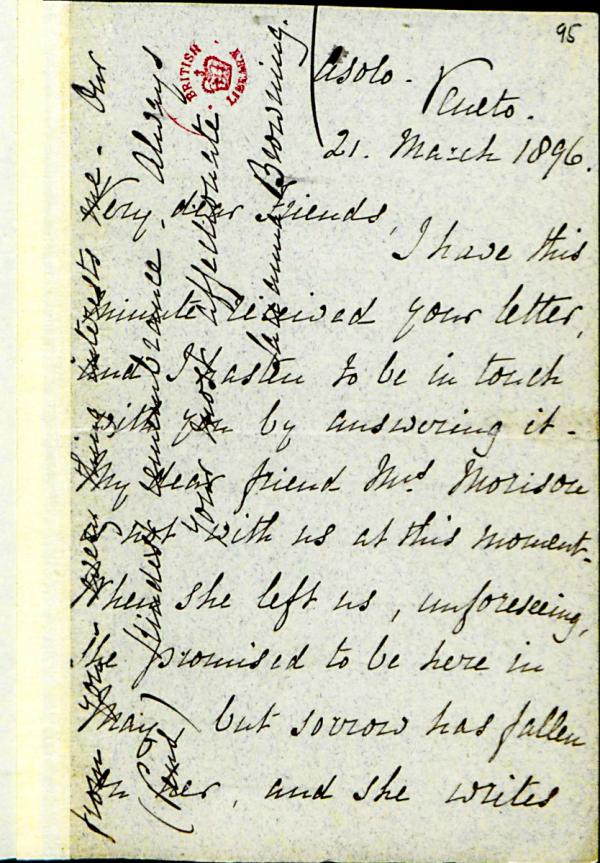 95
BRITISH LIBRARY
Asolo.
Veneto.
21. March 1896.
Very dear Friends,
I have this
minute received your letter,
and I hasten to be in touch
with you by answering it -
My dear friend Mrs Morison
is not with us at this moment.
When she left us, unforeseeing,
she promised to be here in
May, but sorrow has fallen
on her, and she writes
from you. Every thing interests me. Our
(Pen's) kindest remembrance. Always
your most affectionate
Sarianna Browning.